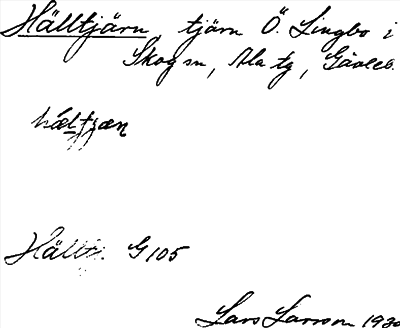 Hälltjärn, tjärn Ö. Lingbo i
Skog sn, Ala tg, Gävleb.
hæltȷæn
Hällt. G 105
Lars Larsson 1930